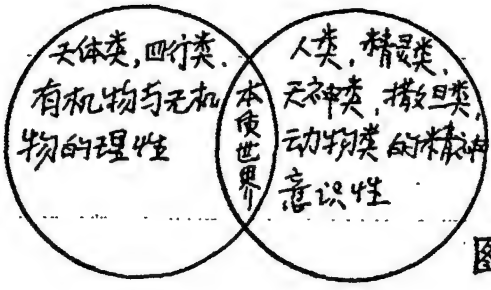 天体类,四行类,
有机物与无机
物的理性
本质世界
人类,精灵类,
天神类,撒旦类,
动物类的精神
意识性
图